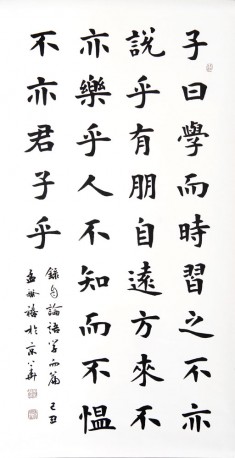 子曰學而時習之不亦
說乎有朋自遠方來不
亦樂乎人不知而不愠
不亦君子乎
錄自論語学而篇 己丑
孟繁禧於京華